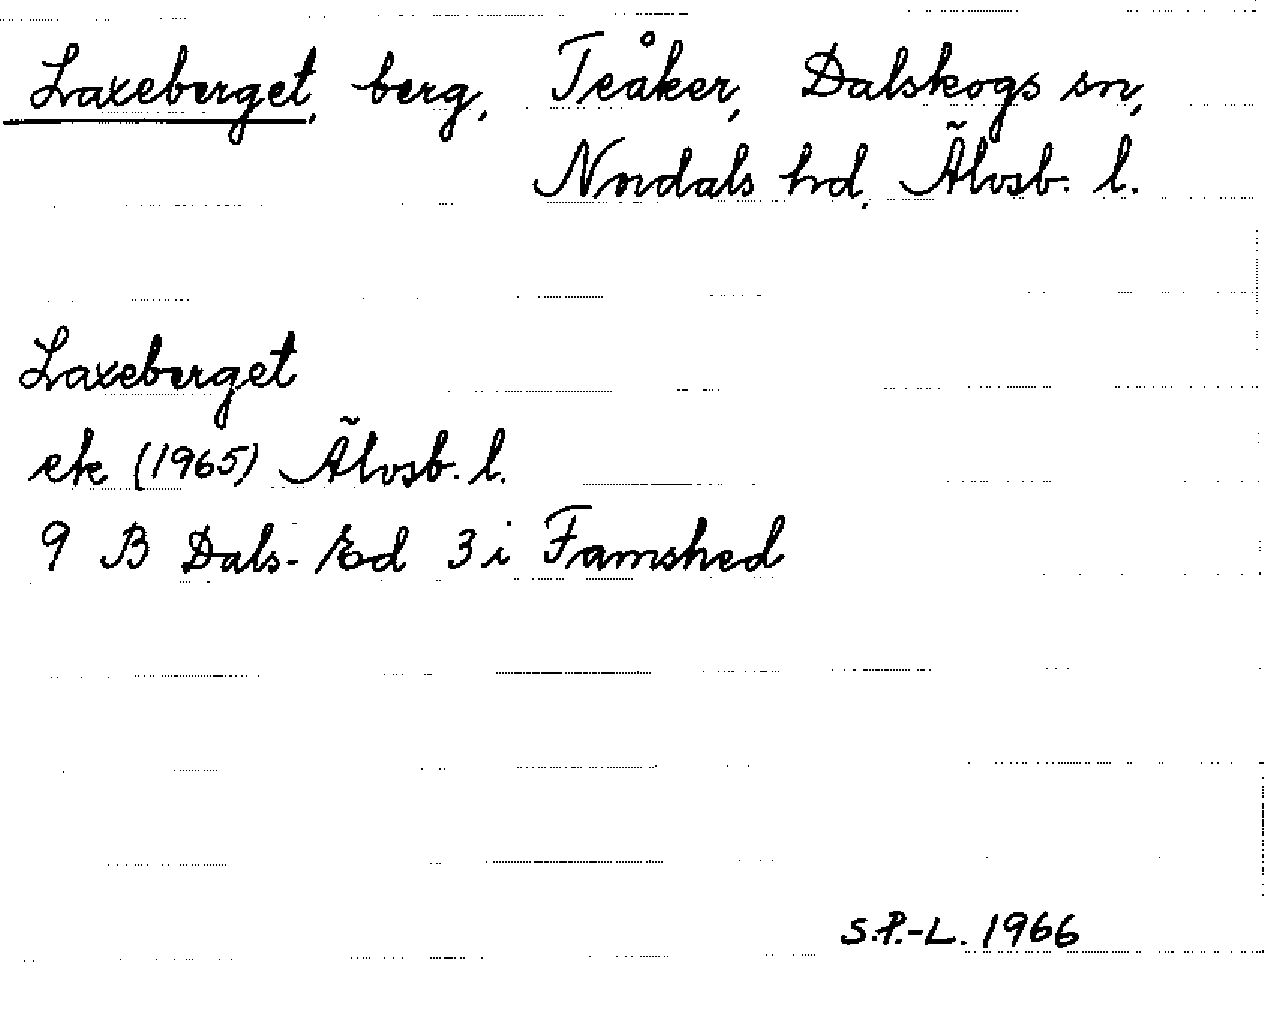 Laxeberget, berg, Teåker, Dalskogs sn,
Nordals hd, Älvsb. l.
Laxeberget
ek (1965) Älvsb. l.
9 B Dals-Ed 3 i Famshed
S.P.-L. 1966